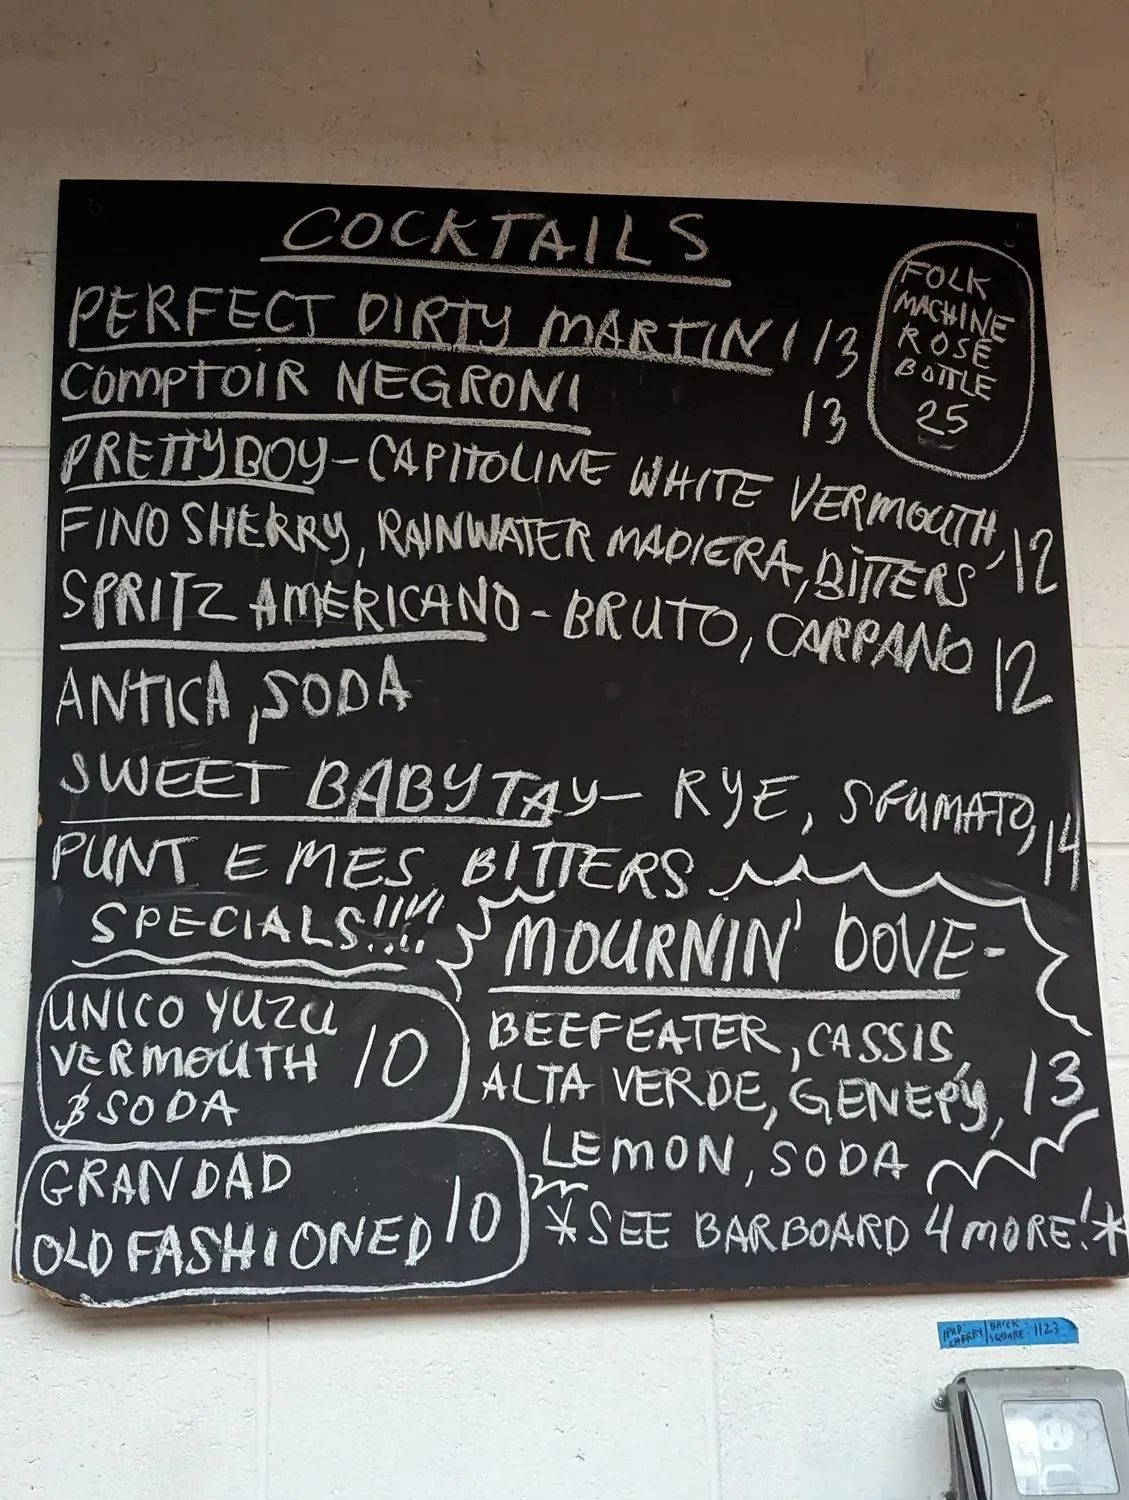 COCKTAILS
PERFECT DIRTY MARTINI 13
COMPTOIR NEGRONI 13
PRETTYBOY - CAPITOLINE WHITE VERMOUTH,
FINO SHERRY, RAINWATER MADIERA, BITTERS 12
SPRITZ AMERICANO - BRUTO, CARPANO 12
ANTICA, SODA
SWEET BABY TAY - RYE, SFUMATO, 14
PUNT E MES, BITTERS
FOLK
MACHINE
ROSE
BOTTLE
25
SPECIALS!!!!
UNICO YUZU
VERMOUTH 10
& SODA
GRANDAD
OLD FASHIONED 10
MOURNIN' DOVE-
BEEFEATER, CASSIS,
ALTA VERDE, GENEPY, 13
LEMON, SODA
*SEE BARBOARD 4 MORE!*
IPAD: BRICK:
CHERRY SQUARE: 1123